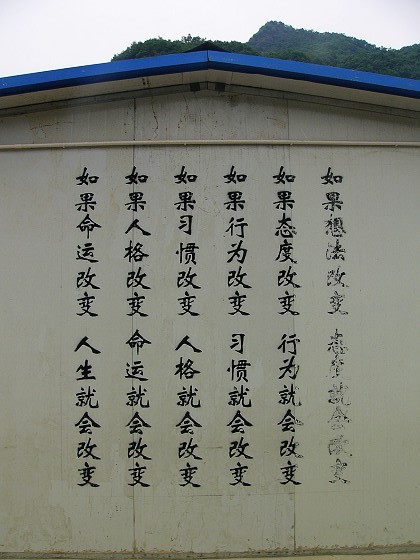 如果想法改变 态度就会改变
如果态度改变 行为就会改变
如果行为改变 习惯就会改变
如果习惯改变 人格就会改变
如果人格改变 命运就会改变
如果命运改变 人生就会改变